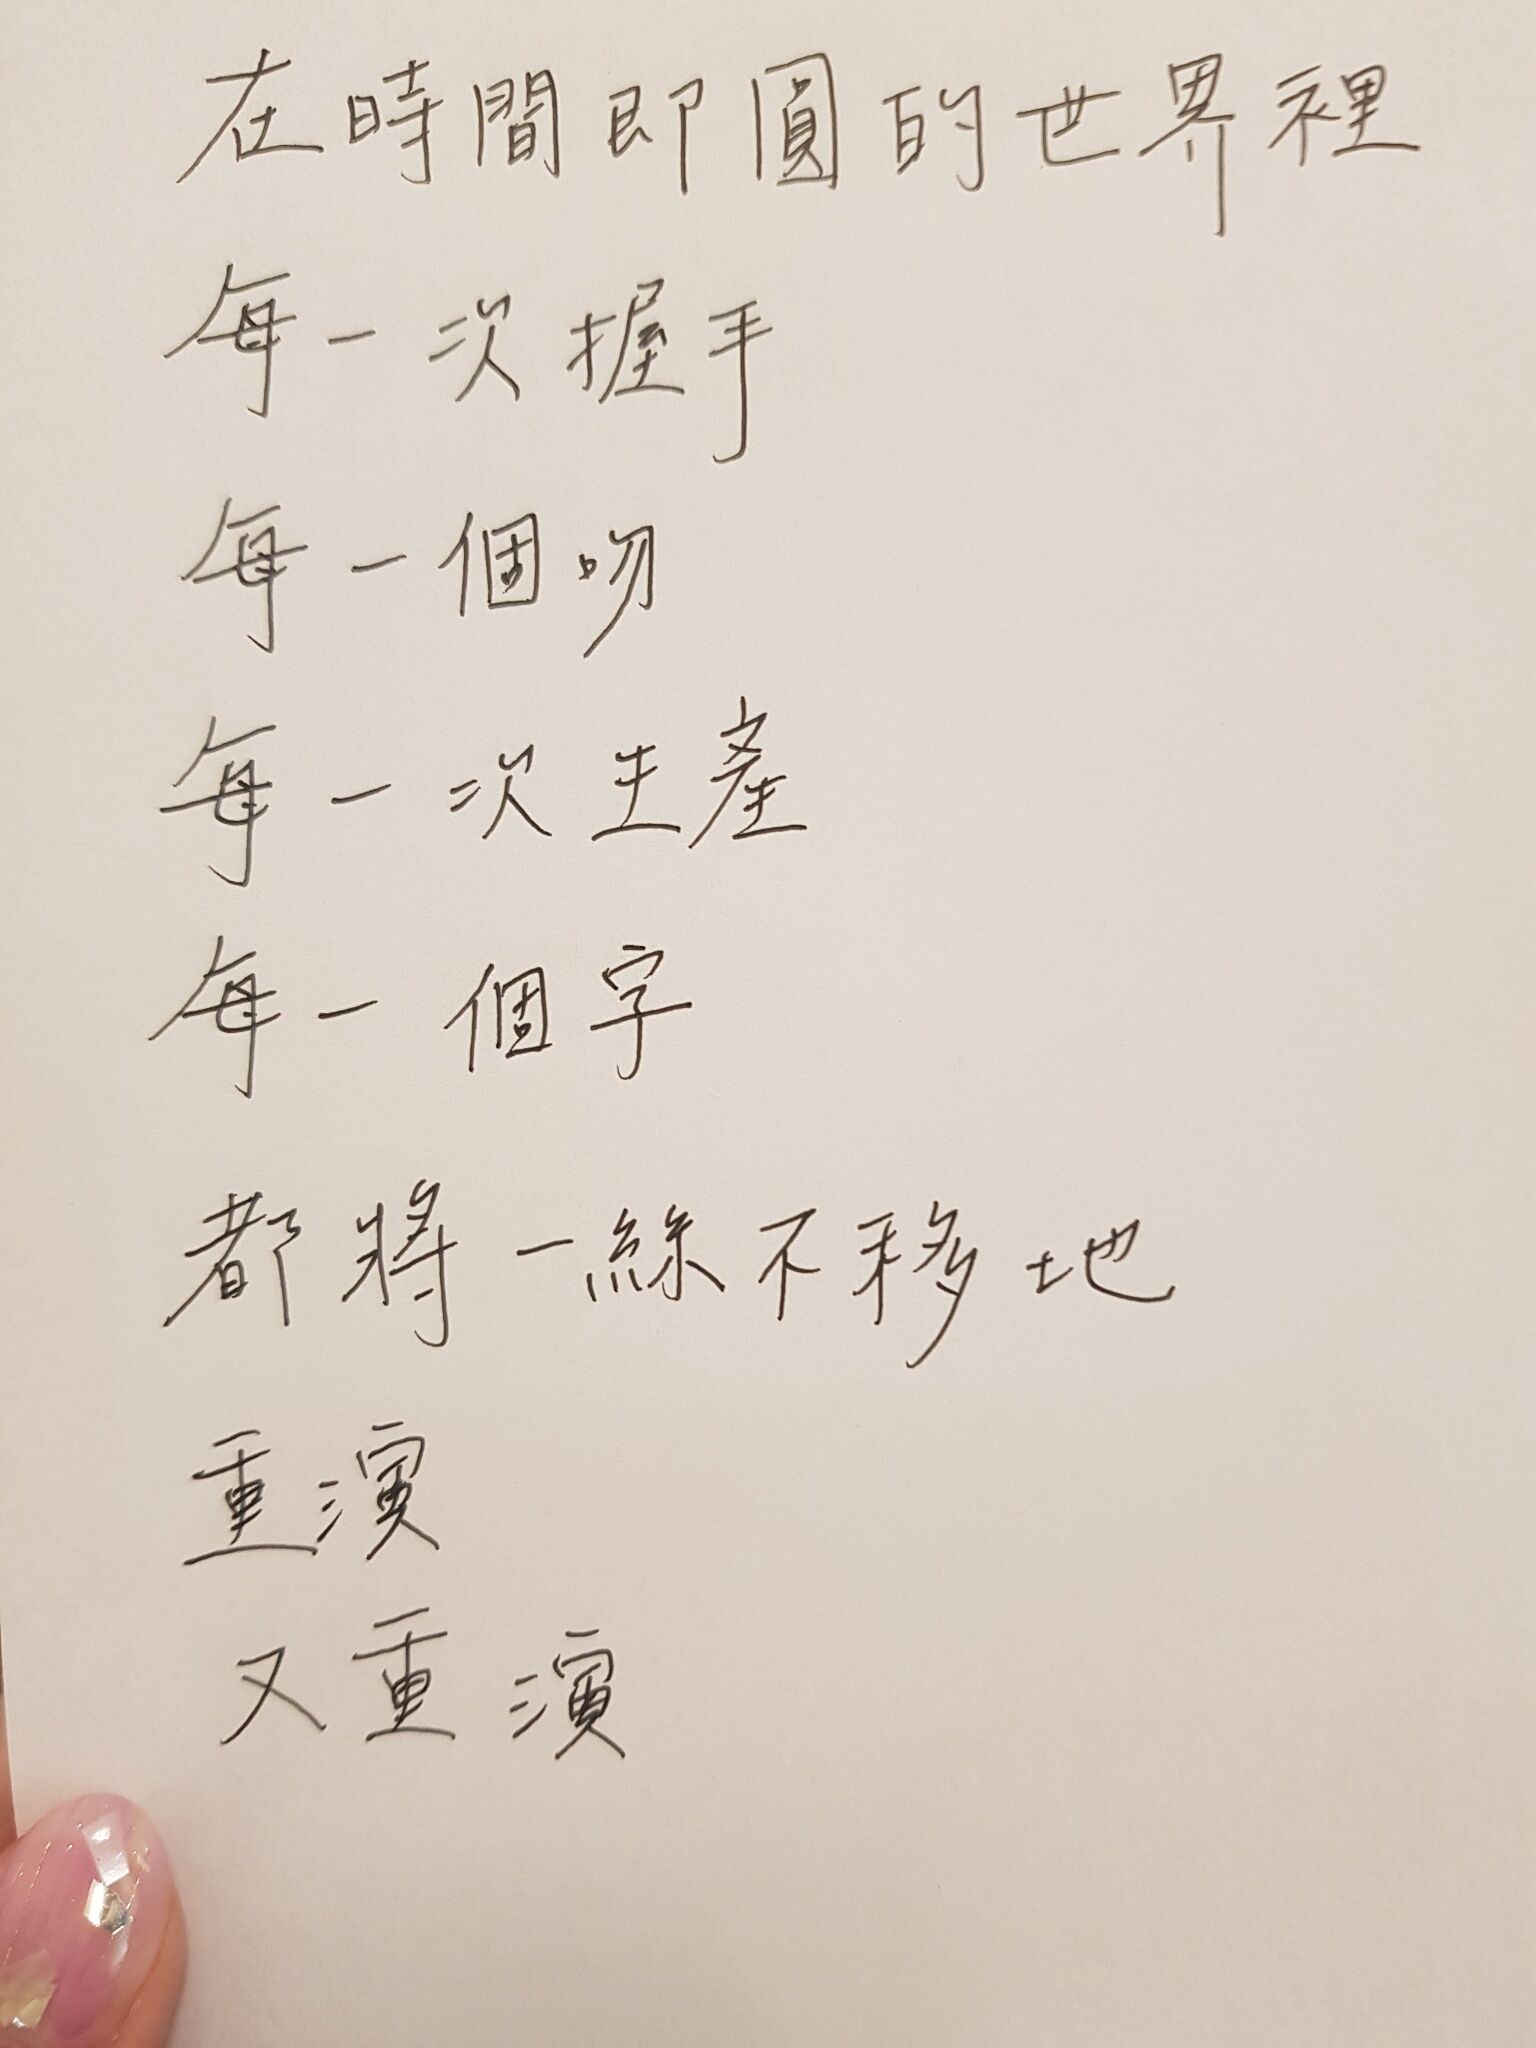 在時間即圓的世界裡
每一次握手
每一個吻
每一次生產
每一個字
都將一絲不移地
重演
又重演